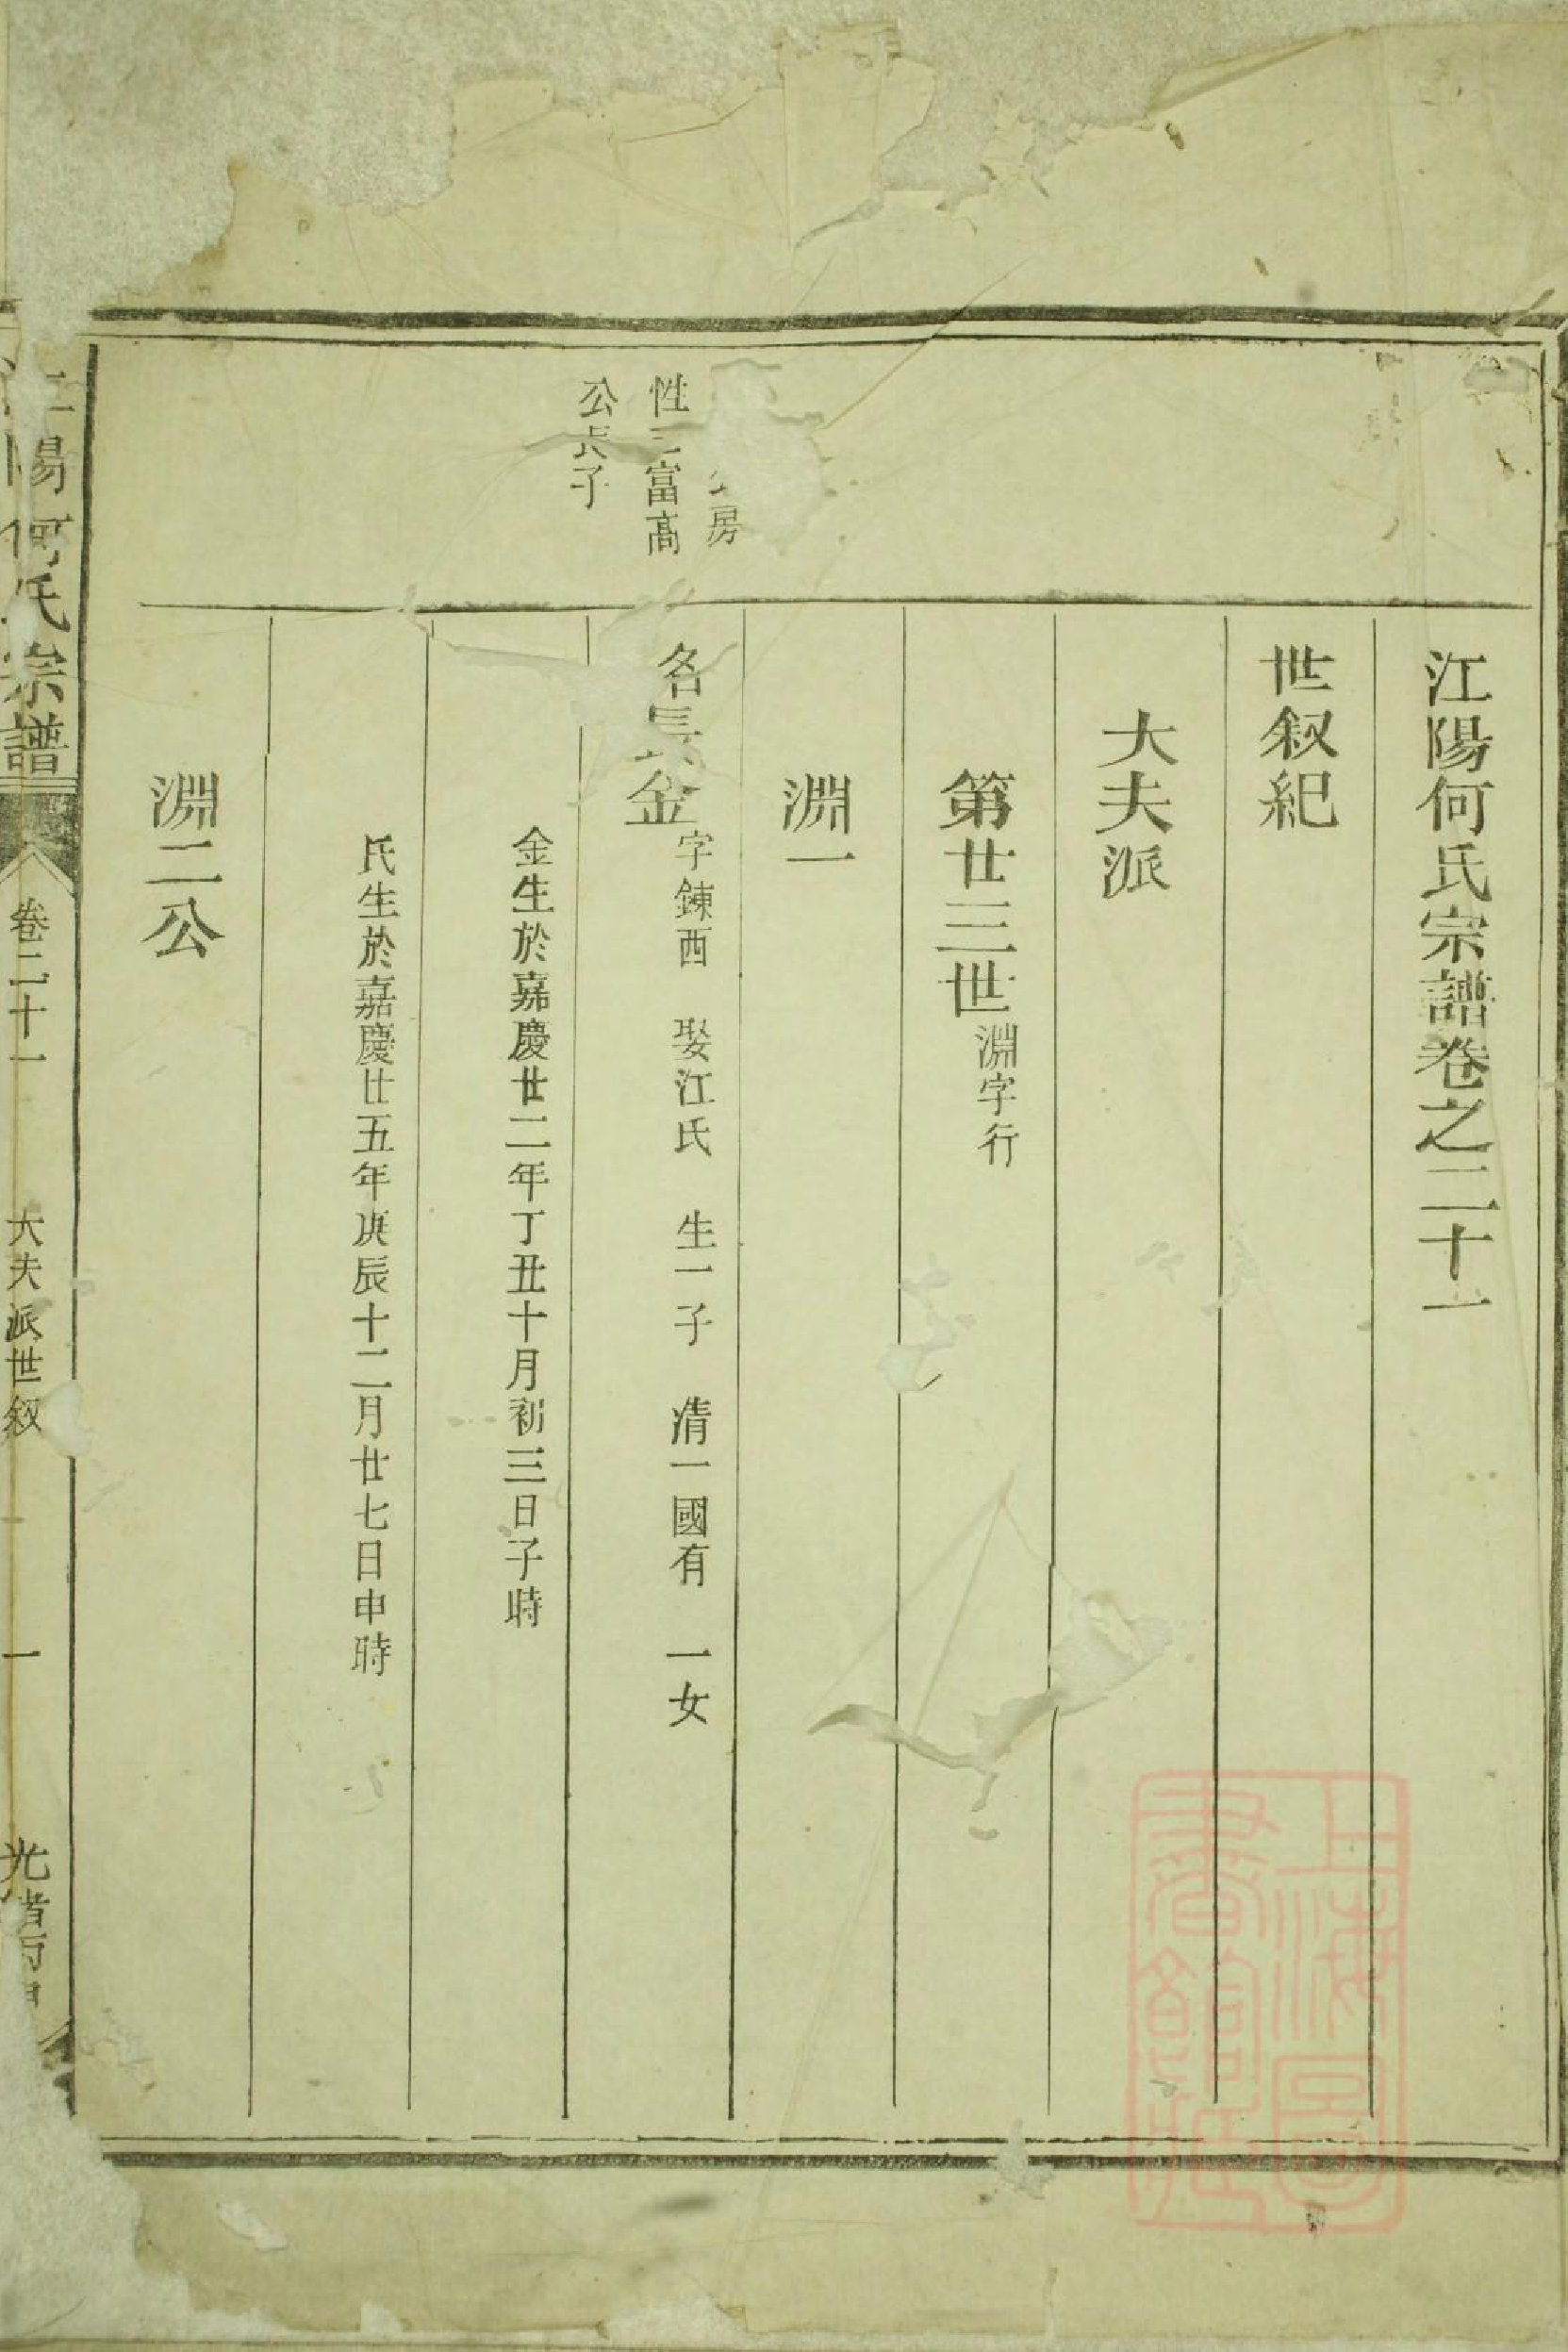 江陽何氏宗譜卷之二十一
世叙紀
大夫派
第廿三世淵字行
淵一
房
性三富高
公長子
名長金字鍊西 娶江氏 生一子 清一國有 一女
金生於嘉慶廿二年丁丑十月初三日子時
氏生於嘉慶廿五年庚辰十二月廿七日申時
淵二公
江陽何氏宗譜 卷二十一 大夫派世叙 一 光緒丙申
上海圖書館藏